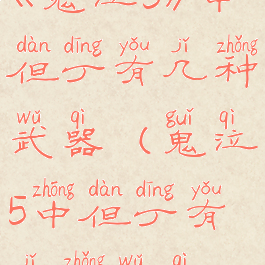 dàn dīng yǒu jǐ zhǒng
但丁有几种
wǔ qì guǐ qì
武器（鬼泣
zhōng dàn dīng yǒu
5中但丁有
jǐ zhǒng wǔ qì